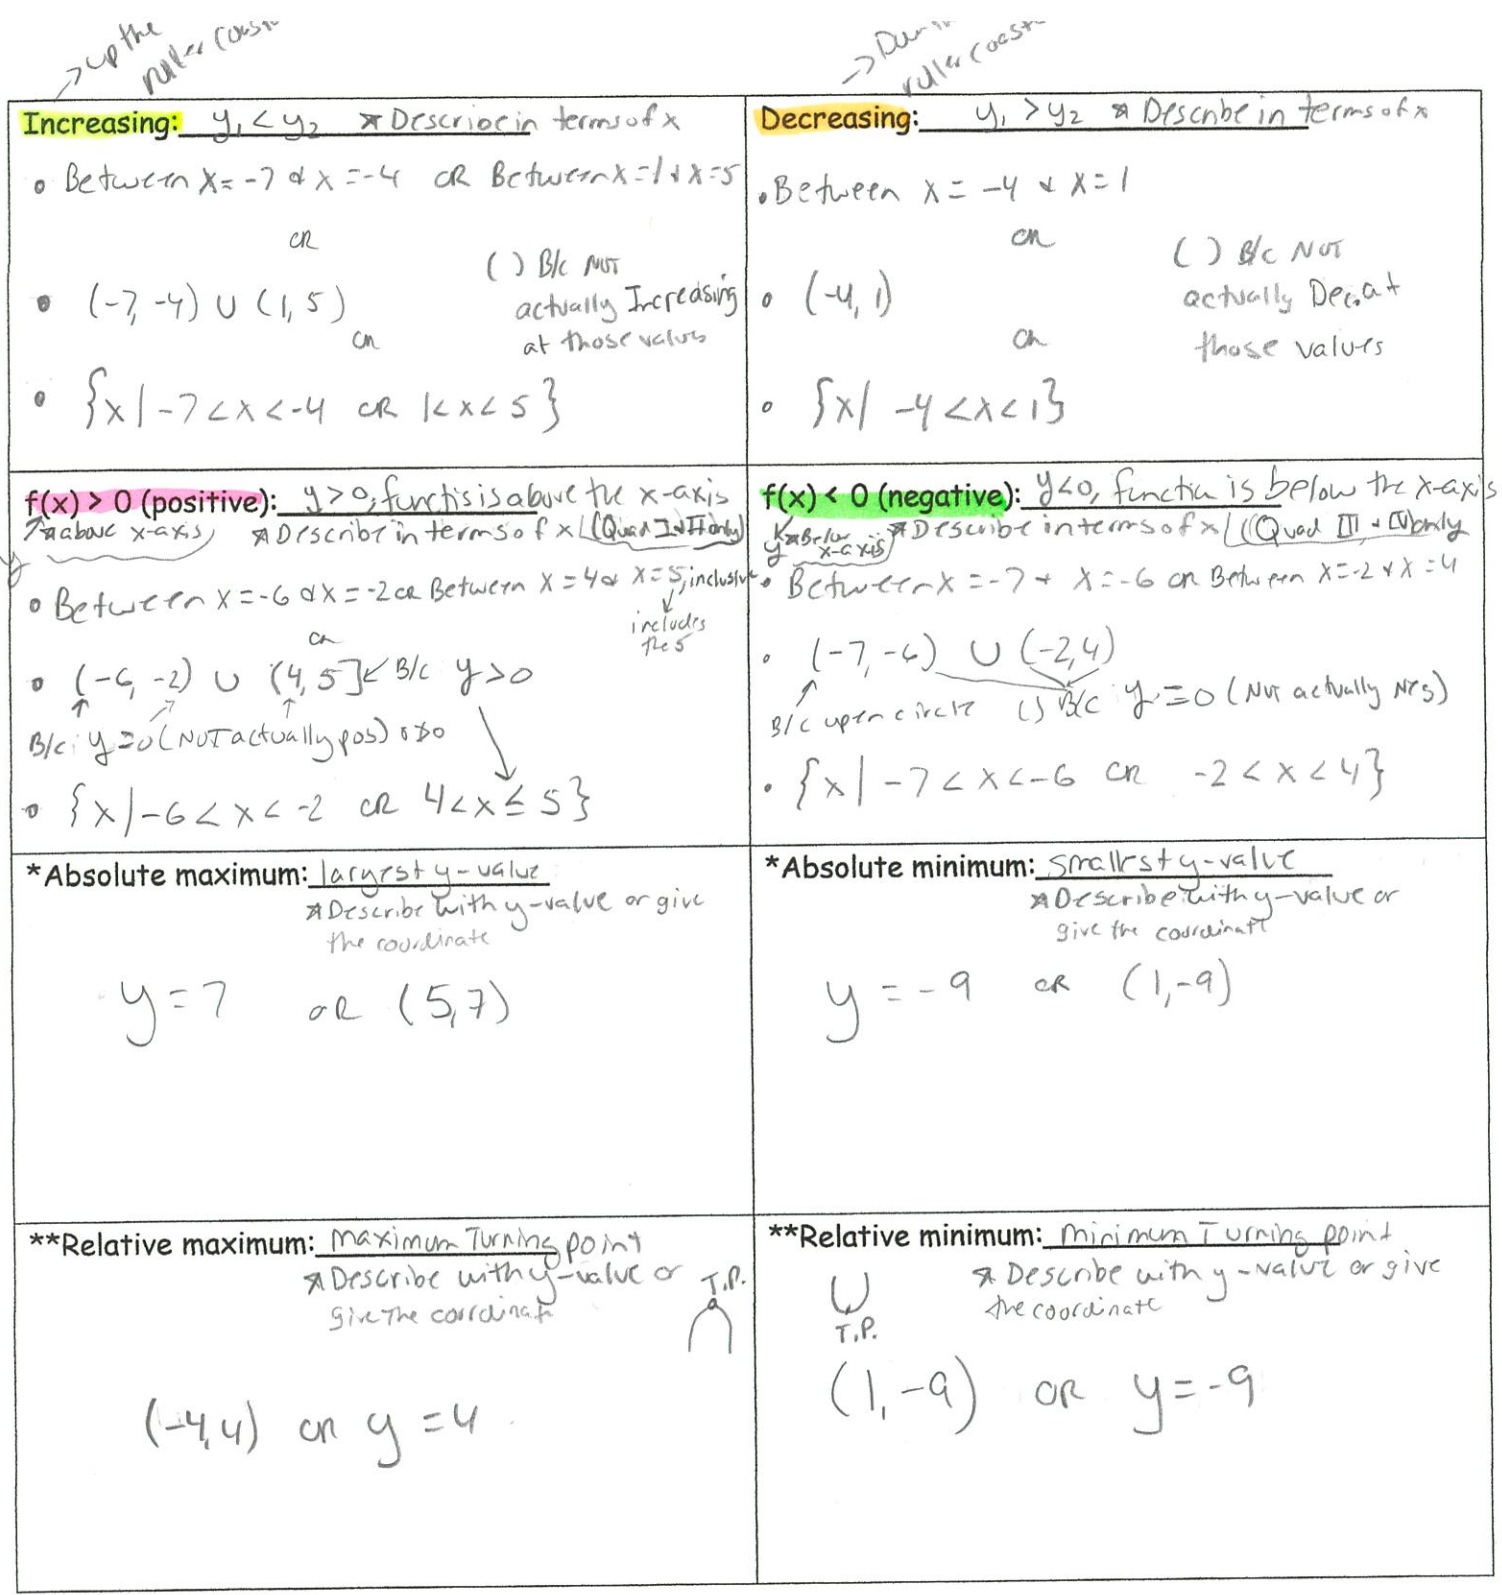 → up the
roller coast
→ Down
roller coast
Increasing: y₁ < y₂ * Describe in terms of x
• Between x = -7 & x = -4 OR Between x = 1 & x = 5
OR
( ) B/c NOT
• (-7, -4) ∪ (1, 5)
actually Increasing
OR
at those values
• {x | -7 < x < -4 OR 1 < x < 5}
Decreasing: y₁ > y₂ * Describe in terms of x
• Between x = -4 & x = 1
OR
( ) B/c NOT
• (-4, 1)
actually Dec. at
OR
those values
• {x | -4 < x < 1}
f(x) > 0 (positive): y > 0, functis is above the x-axis
* above x-axis * Describe in terms of x (Quad I & II only)
y
• Between x = -6 & x = -2 OR Between x = 4 & x = 5, inclusive
includes
the 5
OR
• (-6, -2) ∪ (4, 5] ← B/c y > 0
B/c: y = 0 (NOT actually pos) 0 ≯ 0
• {x | -6 < x < -2 OR 4 < x ≤ 5}
f(x) < 0 (negative): y < 0, function is below the x-axis
* Below
x-axis
y
* Describe in terms of x (Quad III & IV) only
• Between x = -7 + x = -6 OR Between x = -2 & x = 4
• (-7, -6) ∪ (-2, 4)
B/c open circle ( ) B/c y = 0 (Not actually Neg)
• {x | -7 < x < -6 OR -2 < x < 4}
*Absolute maximum: largest y-value
* Describe with y-value or give
the coordinate
y = 7 OR (5, 7)
*Absolute minimum: smallest y-value
* Describe with y-value or
give the coordinate
y = -9 OR (1, -9)
**Relative maximum: Maximum Turning point
* Describe with y-value or
give the coordinate
T.P.
(-4, 4) OR y = 4
**Relative minimum: Minimum Turning point
* Describe with y-value or give
the coordinate
T.P.
(1, -9) OR y = -9